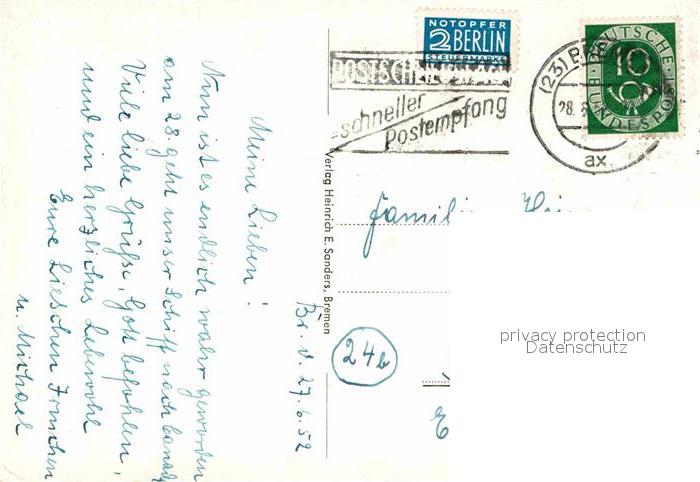 Br. d. 27.6.52
Meine Lieben!
Nun ist es endlich wahr geworden
am 28. geht unser Schiff nach Canada
Viele liebe Grüße, Gott befohlen,
und ein herzliches Lebewohl
Eure Lieschen Irmchen
u. Michael
Verlag Heinrich E. Sanders, Bremen
NOTOPFER
2 BERLIN
STEUERMARKE
POSTSCH
schneller
Postempfang
(23) BRE
28.6
ax
DEUTSCHE
10
BUNDESPOST
Famili
24b
E
privacy protection
Datenschutz